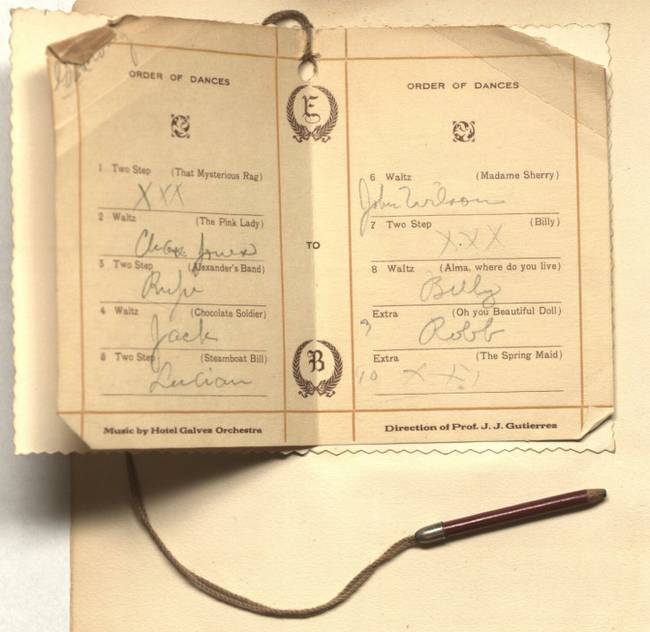 ORDER OF DANCES
1 Two Step (That Mysterious Rag)
XXX
2 Waltz (The Pink Lady)
Chas. Jones
3 Two Step (Alexander's Band)
Rufe
4 Waltz (Chocolate Soldier)
Jack
5 Two Step (Steamboat Bill)
Lucian
Music by Hotel Galvez Orchestra
E
TO
B
ORDER OF DANCES
6 Waltz (Madame Sherry)
John Wilson
7 Two Step (Billy)
X.X.X
8 Waltz (Alma, where do you live)
Billy
Extra (Oh you Beautiful Doll)
9 Robb
Extra (The Spring Maid)
10 X X
Direction of Prof. J. J. Gutierrez